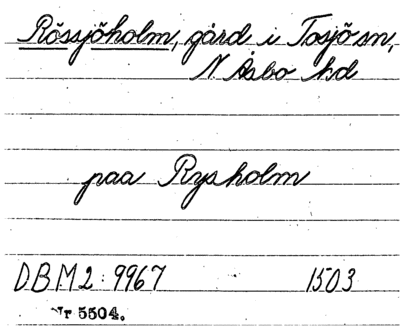 Rössjöholm, gård i Tosjö sn,
N. Åsbo hd
paa Rysholm
DBM2:9967 1503
Nr 5504.